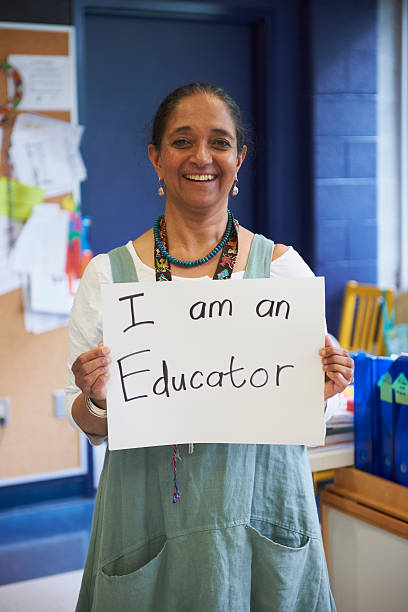 I am an
Educator